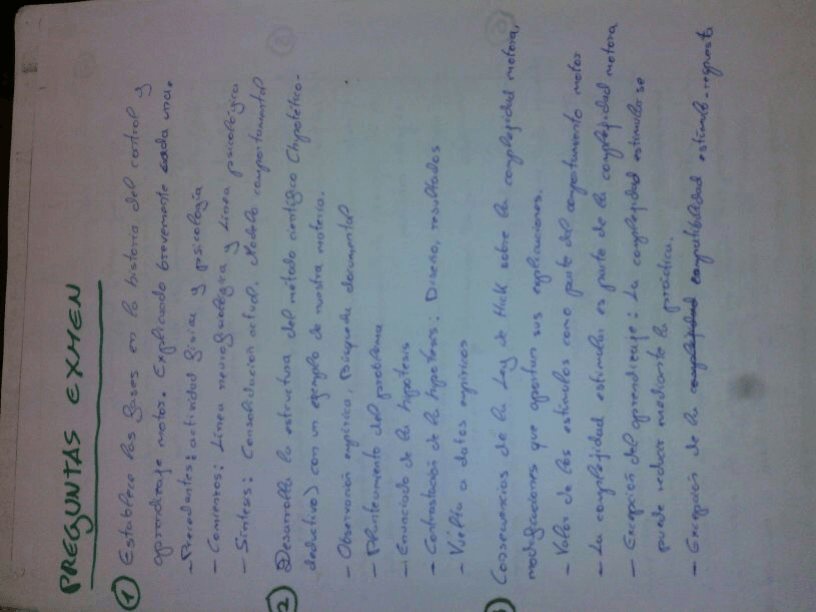 PREGUNTAS EXMEN
1 Establece las fases en la historia del control y
aprendizaje motor. Explicando brevemente cada una.
- Precedentes: actividad física y psicología
- Comienzos: Línea neurofisiológica y Línea psicológica
- Síntesis: Consolidación actual. Modelo comportamental
2 Desarrolla la estructura del método científico (hipotético-
deductivo) con un ejemplo de nuestra materia.
- Observación empírica, Búsqueda documental
- Planteamiento del problema
- Enunciado de la hipótesis
- Contrastación de la hipótesis: Diseño, resultados
- Vuelta a datos empíricos
Consecuencias de la Ley de Hick sobre la complejidad motora,
modificaciones que aportan sus explicaciones.
- Valor de los estímulos como parte del comportamiento motor
- La complejidad estimular es parte de la complejidad motora
- Excepción del aprendizaje: La complejidad estimular se
puede reducir mediante la práctica.
- Excepción de la complejidad compatibilidad estímulo-respuesta